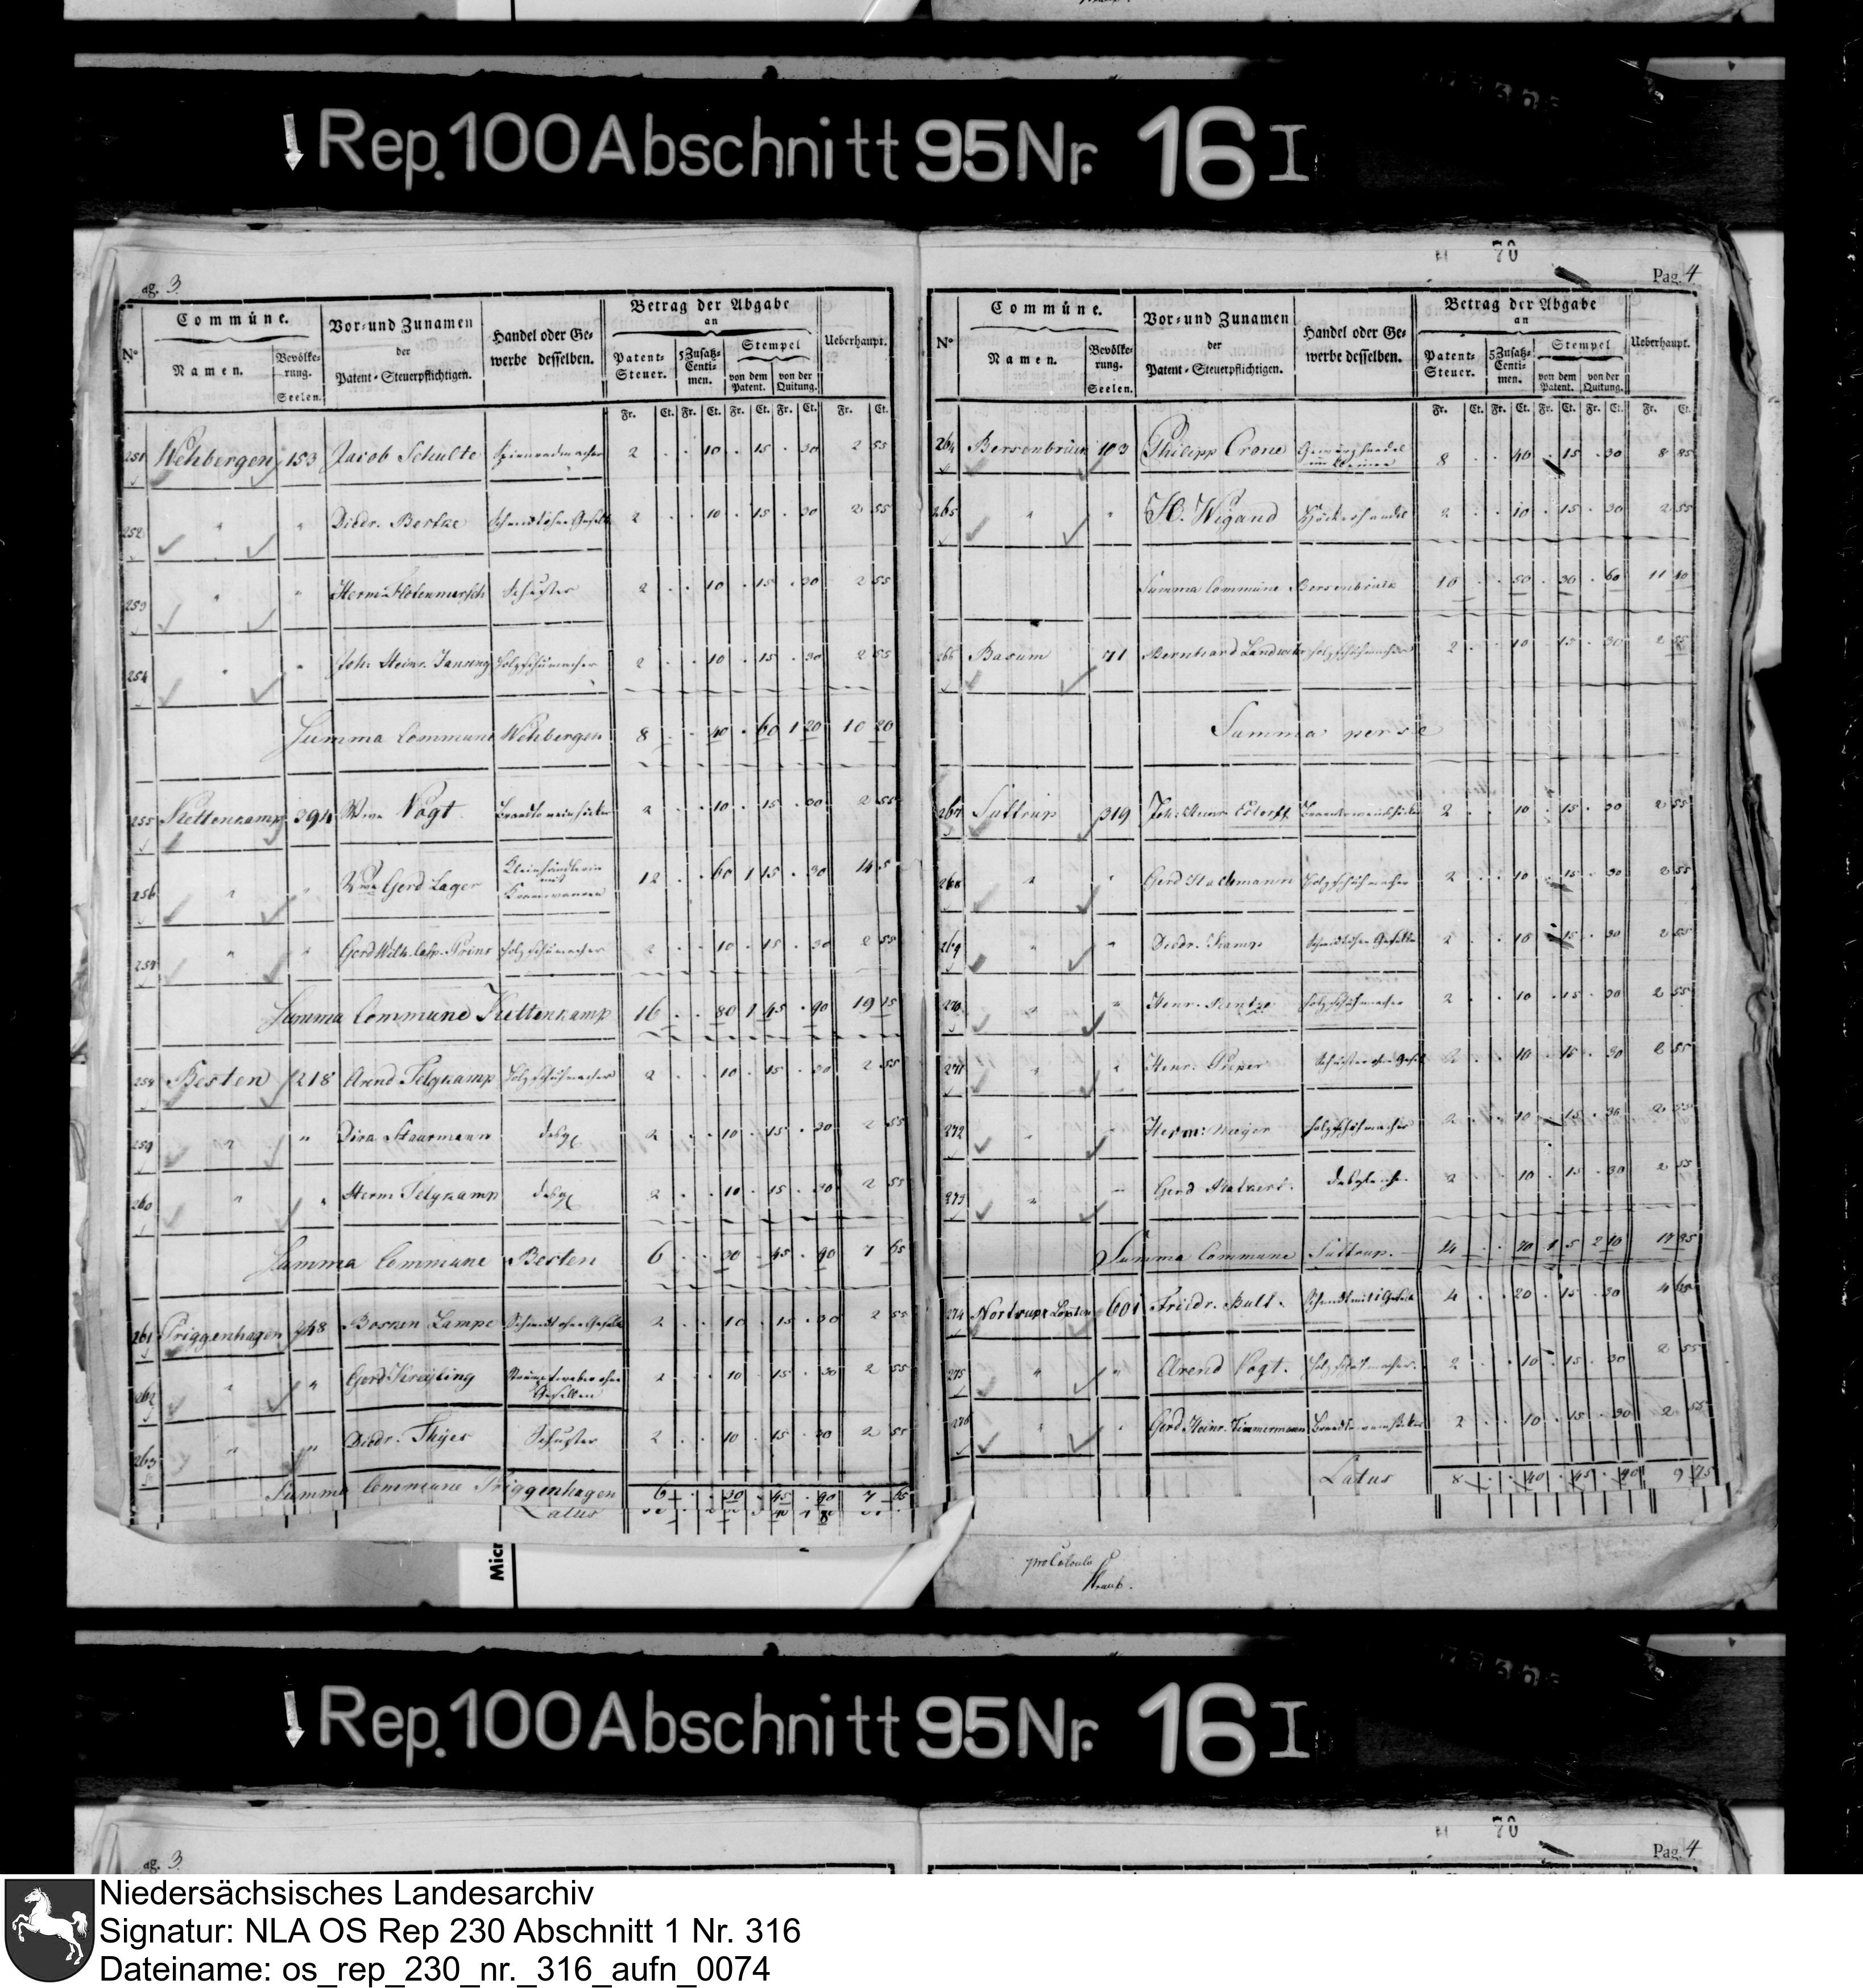 Rep. 100 Abschnitt 95 Nr. 16 I
70
ag. 3.
Nº
Commüne.
Namen.
Bevölke-rung.
Seelen.
Vor- und Zunamen
der
Patent-Steuerpflichtigen.
Handel oder Ge-
werbe desselben.
Betrag der Abgabe
an
Patent-Steuer.
5 Zusatz-Centi-men.
Stempel
von dem Patent.
von der Quitung.
Ueberhaupt.
Fr. Ct. Fr. Ct. Fr. Ct. Fr. Ct. Fr. Ct.
251 Wehbergen 153 Jacob Schulte 2 . . 10 . 15 . 30 2 55
252 " " Diedr. Bertke Schmidt ohne Geselle 2 . . 10 . 15 . 30 2 55
253 " " Herm Schuster 2 . . 10 . 15 . 30 2 55
254 " " Joh: Heinr. Jansing Holzschumacher 2 . . 10 . 15 . 30 2 55
Summa Commune Wehbergen 8 . . 40 . 60 1 20 10 20
255 Kettenkamp 394 Wwe Vogt 2 . . 10 . 15 . 30 2 55
256 " " Wwe Gerd Lager Kleinhändlerin mit Kramwaaren 12 . . 60 1 15 . 30 14 5
257 " " Gerd Wilh. Prins Holzschumacher 2 . . 10 . 15 . 30 2 55
Summa Commune Kettenkamp 16 . . 80 1 45 . 90 19 15
258 Besten 218 Arend Telgkamp Holzschuhmacher 2 . . 10 . 15 . 30 2 55
259 " " Dira Staurmann desgl 2 . . 10 . 15 . 30 2 55
260 " " Herm Telgkamp desgl 2 . . 10 . 15 . 30 2 55
Summa Commune Besten 6 . . 30 . 45 . 90 7 65
261 Priggenhagen Lampe Schmidt ohne Geselle 2 . . 10 . 15 . 30 2 55
262 " " Gerd ohne Gesellen 2 . . 10 . 15 . 30 2 55
263 " " Diedr. Thyes Schuster 2 . . 10 . 15 . 30 2 55
Summa Commune Priggenhagen 6 . . 30 . 45 . 90 7 65
Latus
Pag. 4
Nº
Commüne.
Namen.
Bevölke-rung.
Seelen.
Vor- und Zunamen
der
Patent-Steuerpflichtigen.
Handel oder Ge-
werbe desselben.
Betrag der Abgabe
an
Patent-Steuer.
5 Zusatz-Centi-men.
Stempel
von dem Patent.
von der Quitung.
Ueberhaupt.
Fr. Ct. Fr. Ct. Fr. Ct. Fr. Ct. Fr. Ct.
264 Bersenbrück 103 Philipp Crone 8 . . 40 . 15 . 30 8 85
265 " " H. Wigand Höckerhandel 2 . . 10 . 15 . 30 2 55
Summa Commüne Bersenbrück 10 . . 50 . 30 . 60 11 40
266 Basum 71 Bernhard Landwehr Holzschuhmacher 2 . . 10 . 15 . 30 2 55
Summa per se
267 Suttrup 319 Joh: Heinr 2 . . 10 . 15 . 30 2 55
268 " " Gerd Holzschuhmacher 2 . . 10 . 15 . 30 2 55
269 " " Diedr. Kamp Schmidt ohne Geselle 2 . . 10 . 15 . 30 2 55
270 " " Henr. Holzschuhmacher 2 . . 10 . 15 . 30 2 55
271 " " Henr. Pieper Schuster ohne Gesell 2 . . 10 . 15 . 30 2 55
272 " " Herm: Meyer Holzschuhmacher 2 . . 10 . 15 . 30 2 55
273 " " Gerd desgleichen 2 . . 10 . 15 . 30 2 55
Summa Commune Suttrup. 14 . . 70 1 5 2 10 17 85
274 Nortrup Loxten 601 Friedr. Bull. Schmidt mit 1 Geselle 4 . . 20 . 15 . 30 4 65
275 " " Arend Vogt. Holzschuhmacher. 2 . . 10 . 15 . 30 2 55
276 " " Gerd Heinr. Timmermann 2 . . 10 . 15 . 30 2 55
Latus 8 . . 40 . 45 . 90 9 75
pro Calculo
Micr
Rep. 100 Abschnitt 95 Nr. 16 I
70
ag. 3
Pag. 4
Niedersächsisches Landesarchiv
Signatur: NLA OS Rep 230 Abschnitt 1 Nr. 316
Dateiname: os_rep_230_nr._316_aufn_0074